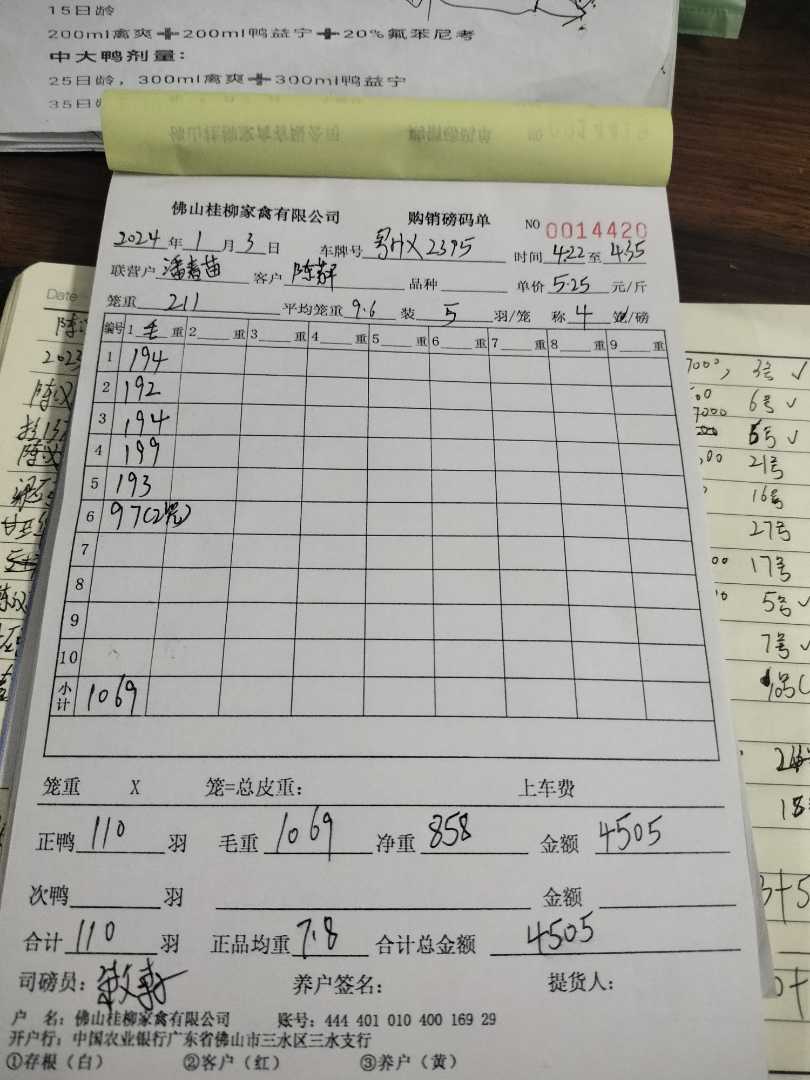 15日龄
200ml禽爽+200ml鸭益宁+20%氟苯尼考
中大鸭剂量:
25日龄,300ml禽爽+300ml鸭益宁
35日龄
佛山桂柳家禽有限公司 购销磅码单 NO 0014420
2024年1月3日 车牌号 2395 时间4:22至4:35
联营户 潘 苗 客户 陈 品种 单价5.25元/斤
笼重 211 平均笼重9.6 装5羽/笼 称4笼/磅
编号 1毛重 2重 3重 4重 5重 6重 7重 8重 9重
1 194
2 192
3 194
4 199
5 193
6 97(2笼)
7
8
9
10
小计 1069
笼重 X 笼=总皮重: 上车费
正鸭110羽 毛重1069 净重858 金额4505
次鸭 羽 金额
合计110羽 正品均重7.8 合计总金额4505
司磅员: 养户签名: 提货人:
户 名:佛山桂柳家禽有限公司 账号:444 401 010 400 169 29
开户行:中国农业银行广东省佛山市三水区三水支行
①存根(白) ②客户(红) ③养户(黄)
Date
3号 ✓
6号 ✓
5号 ✓
21号
16号
27号
17号
5号 ✓
7号 ✓